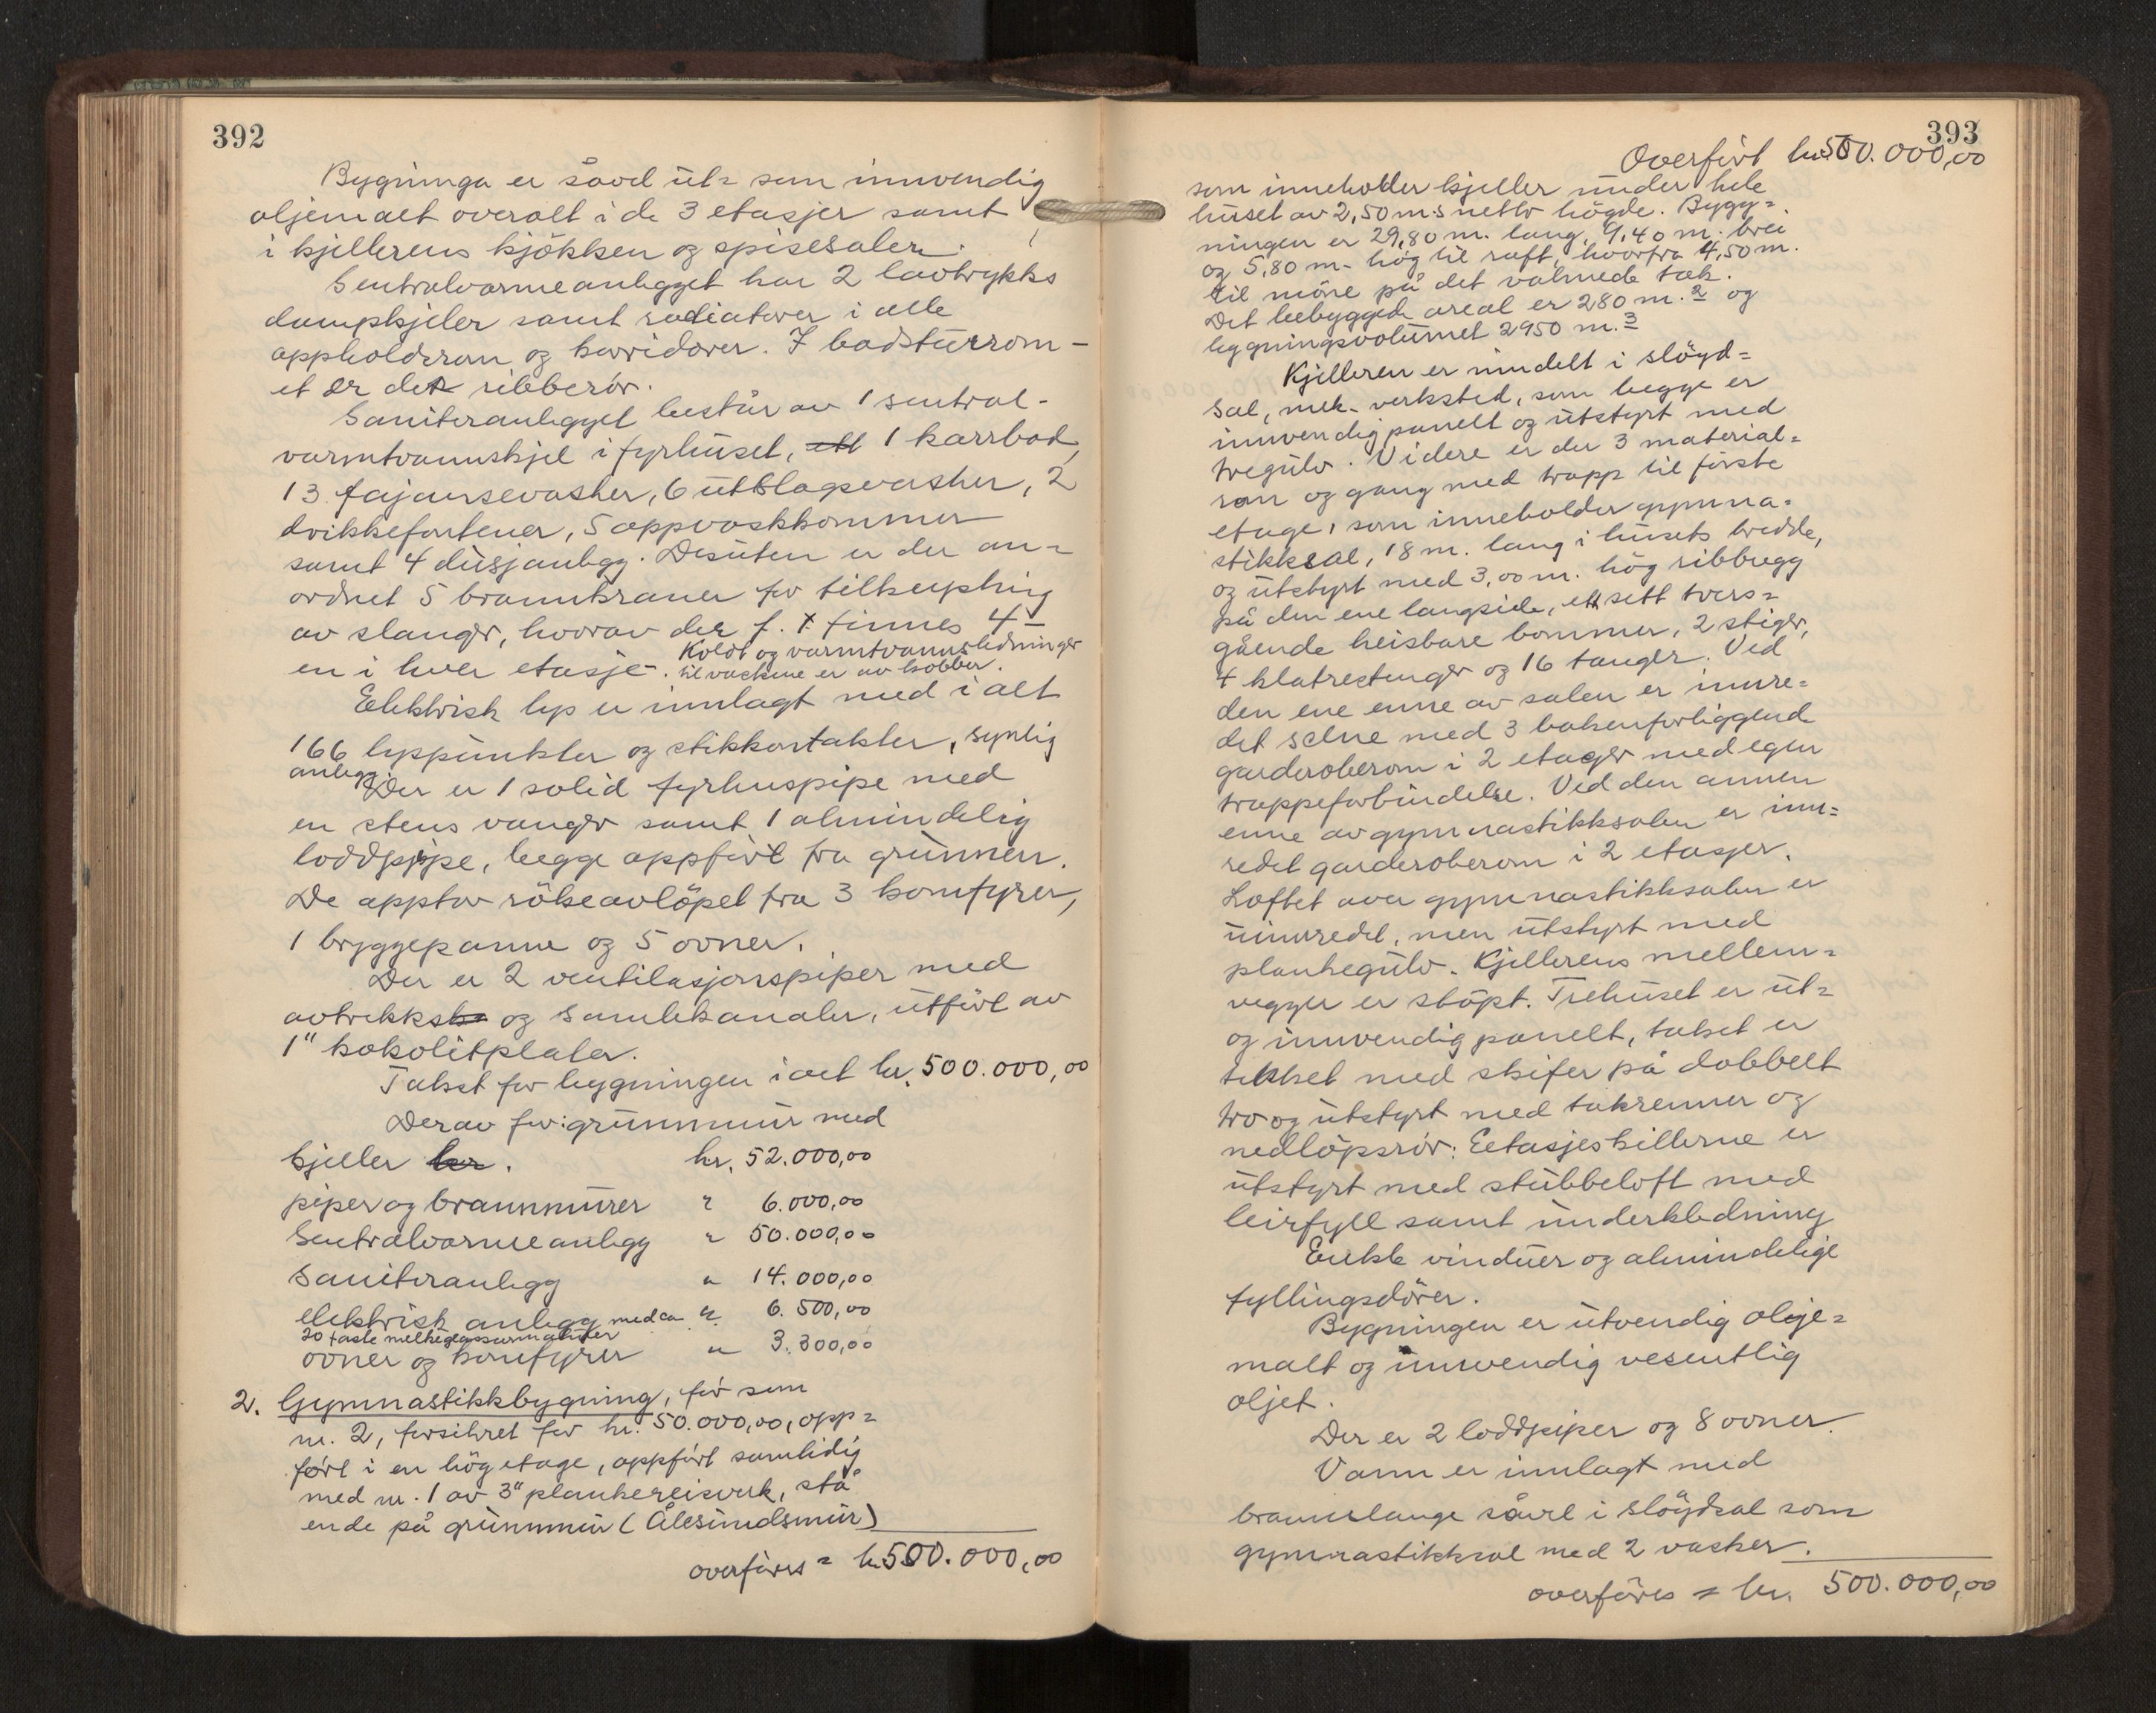 392
Bygninga er såvel ut= som innvendig
oljemalt overalt i de 3 etasjer samt
i kjellerens kjökken og spisesaler.
Sentralvarmeanlegget har 2 lavtrykks
dampkjeler samt radiatorer i alle
oppholdsrom og korridorer. I badsturrom-
et er det ribberör.
Saniteranlegget består av 1 sentral-
varmtvannskjel i fyrhuset, ett 1 karrbad,
13 fajansevasker, 6 utslagsvasker, 2
drikkefontener, 5 oppvaskkommer
samt 4 dusjanlegg. Desuten er der an=
ordnet 5 brannkraner for tilkepling
av slanger, hvorav der f. t. finnes 4 -
en i hver etasje. Koldt og varmtvannsledninger
til vaskene er av kobber.
Elektrisk lys er innlagt med i alt
166 lyspunkter og stikkontakter, synlig
anlegg.
Der er 1 solid fyrhuspipe med
en stens vanger samt 1 almindelig
loddpipe, begge oppfört fra grunnen.
De opptar rökeavlöpet fra 3 komfyrer,
1 bryggepanne og 5 ovner.
Der er 2 ventilasjonspiper med
avtrekks og samlekanaler, utfört av
1" kokolitplater.
Takst for bygningen i alt kr. 500.000,00
Derav for: grunnmur med
kjeller kr. kr. 52.000,00
piper og brannmurer " 6.000,00
Sentralvarmeanlegg " 50.000,00
Saniteranlegg " 14.000,00
elektrisk anlegg med ca " 6.500,00
20 faste melkeglassarmaturer
ovner og komfyrer " 3.300,00
2. Gymnastikkbygning, för som
nr. 2, forsikret for kr. 50.000,00, opp=
fört i en hög etage, oppfört samtidig
med nr. 1 av 3" plankereisverk, stå
ende på grunnmur (Ålesundsmur)
overföres = kr 500.000,00
393
Overfört kr 500.000,00
som inneholder kjeller under hele
huset av 2,50 m.s netto högde. Bygg=
ningen er 29,80 m. lang, 9,40 m. brei
og 5,80 m. hög til raft, hvorfra 4,50 m.
til möne på det valmede tak.
Det bebyggede areal er 280 m.2 og
bygningsvolumet 2950 m.3
Kjelleren er inndelt i slöyd=
sal, mek. verksted, som begge er
innvendig panelt og utstyrt med
tregulv. Videre er der 3 material=
rom og gang med trapp til förste
etage, som inneholder gymna=
stikksal, 18 m. lang i husets bredde,
og utstyrt med 3,00 m. hög ribbvegg
på den ene langside, ett sett tvers=
gående heisbare bommer, 2 stiger,
4 klatrestenger og 16 tanger. Ved
den ene enne av salen er innre=
det scene med 3 bakenforliggende
garderoberom i 2 etager med egen
trappeforbindelse. Ved den annen
enne av gymnastikksalen er inn=
redet garderoberom i 2 etasjer.
Loftet over gymnastikksalen er
uinnredet, men utstyrt med
plankegulv. Kjellerens mellem=
vegger er stöpt. Trehuset er ut=
og innvendig panelt, taket er
tekket med skifer på dobbelt
tro og utstyrt med takrenner og
nedlöpsrör. Eetasjeskillerne er
utstyrt med stubbeloft med
leirfyll samt underkledning
Enkle vinduer og almindelige
fyllingsdörer.
Bygningen er utvendig olje=
malt og innvendig vesentlig
oljet.
Der er 2 loddpiper og 8 ovner.
Vann er innlagt med
brannslange såvel i slöydsal som
gymnastikksal med 2 vasker.
overföres = kr. 500.000,00